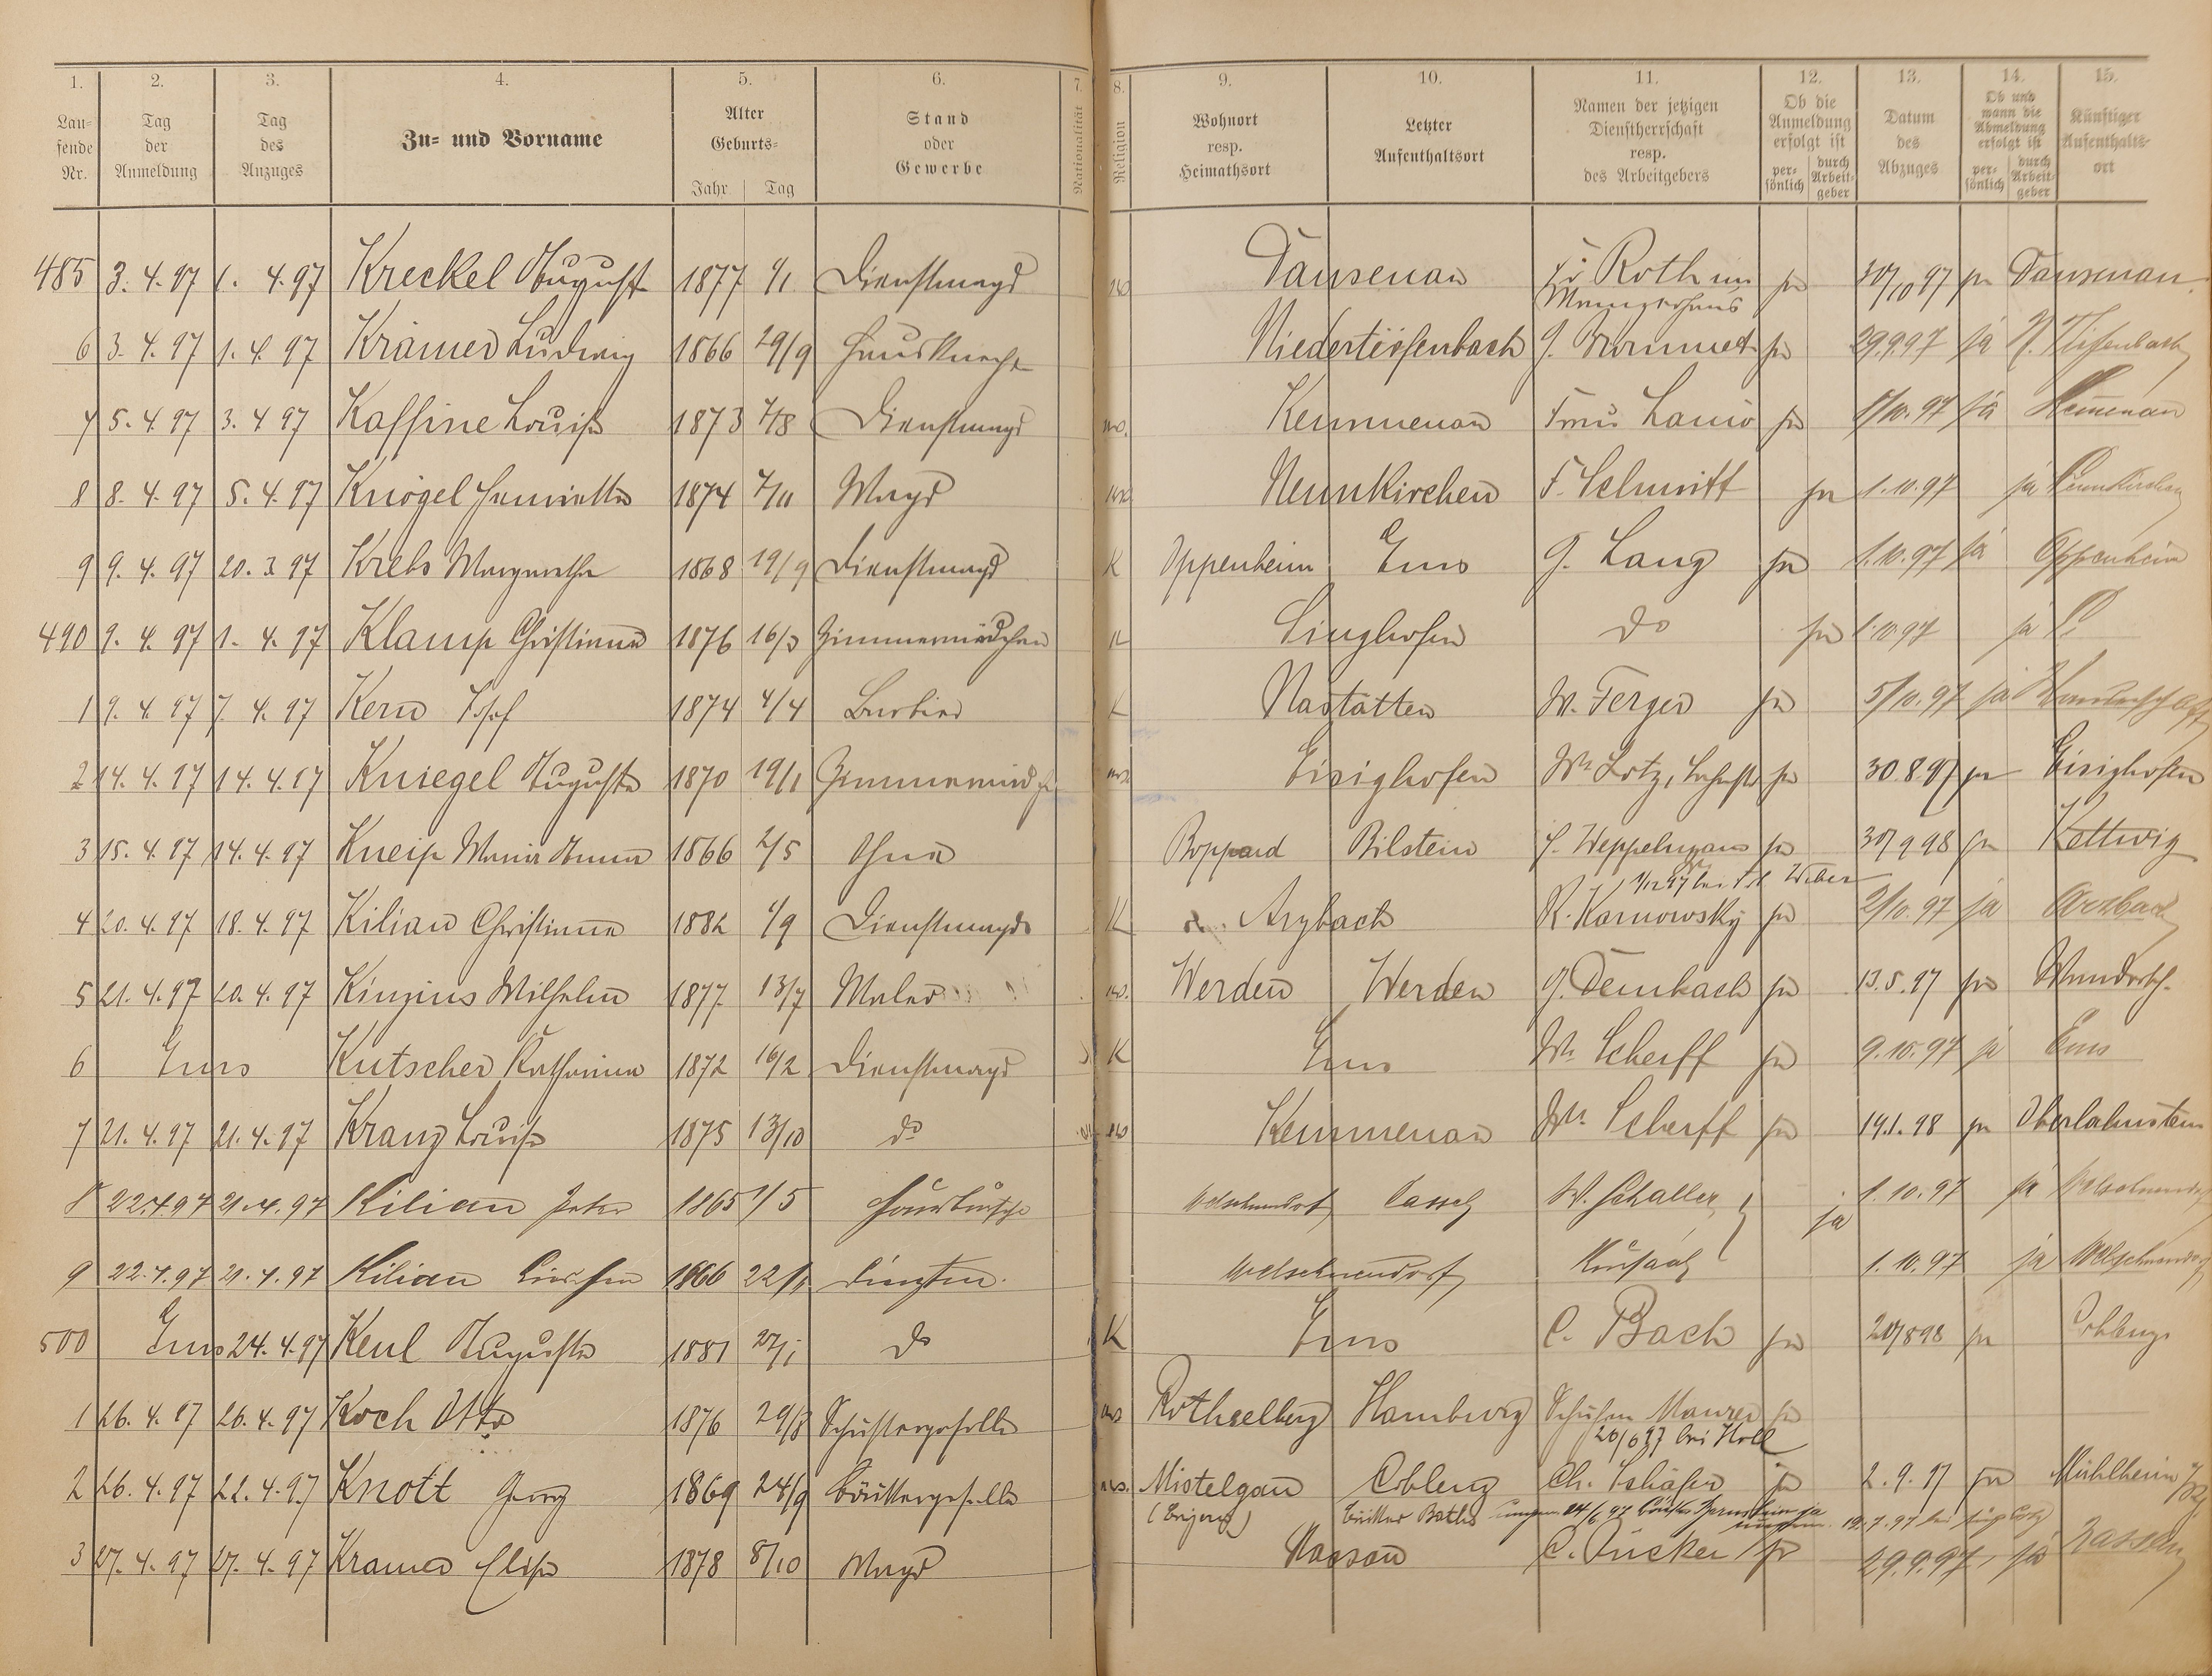 1. 2. 3. 4. 5. 6. 7. 8. 9. 10. 11. 12. 13. 14. 15.
Lau-
fende
Nr.
Tag
der
Anmeldung
Tag
des
Anzuges
Zu- und Vorname
Alter
Geburts-
Jahr Tag
Stand
oder
Gewerbe
Nationalität
Religion
Wohnort
resp.
Heimathsort
Letzter
Aufenthaltsort
Namen der jetzigen
Dienstherrschaft
resp.
des Arbeitgebers
Ob die
Anmeldung
erfolgt ist
per-
sönlich
durch
Arbeit-
geber
Datum
des
Abzuges
Ob und
wann die
Abmeldung
erfolgt ist
per-
sönlich
durch
Arbeit-
geber
Künftiger
Aufenthalts-
ort
485 3. 4. 97 1. 4. 97 Kreckel August 1877 1/1 Dienstmagd Dausenau Roth im ja 30/10 97 ja Dausenau.
Mainzerhaus
6 3. 4. 97 1. 4. 97 Krämer Ludwig 1866 29/9 Hausknecht Niedertiefenbach ja 29.9.97 ja N. Tiefenbach
7 5. 4. 97 3. 4 97 Kaffine Louise 1873 7/8 Dienstmagd Kemmenau ja 1/10. 97 ja Kemmenau
8 8. 4. 97 5. 4. 97 Knögel Henriette 1874 7/11 Magd Neunkirchen F. Schmitt ja 1. 10. 97 ja Neunkirchen
9 9. 4. 97 20. 3. 97 Krebs Margarethe 1868 19/9 Dienstmagd K Oppenheim Ems G. Lang ja 1. 10. 97 ja Oppenheim
490 9. 4. 97 1. 4. 97 Klamp Christiane 1876 16/3 Zimmermädchen K Singhofen do ja 1. 10 97 ja
1 9. 4. 97 7. 4. 97 Kern Josef 1874 4/4 Barbier K Nastätten W. Ferger ja 5/10. 97 ja Wanderschaft
2 14. 4. 97 14. 4. 97 Kniegel Auguste 1870 19/1 Eisighofen Wn Lotz, ja 30. 8. 97 ja Eisighofen
3 15. 4. 97 14. 4. 97 Kneip Maria Anna 1866 2/5 Ohne Boppard Bilstein ja 30/9 98 ja Kettwig
1/12 97 bei Weber
4 20. 4. 97 18. 4. 97 Kilian Christiane 1882 1/9 Dienstmagd K Arzbach R. Karnowsky ja 2/10. 97 ja Arzbach
5 21. 4. 97 20. 4. 97 Kinzius Wilhelm 1877 13/7 Maler Werden Werden G. Dembach ja 13. 5. 97 ja Wandersch.
6 Ems Kutscher Katharina 1872 16/2 Dienstmagd K Ems Wn Scherff ja 9. 10. 97 ja Ems
7 21. 4. 97 21. 4. 97 Kranz Louise 1875 13/10 do Kemmenau Wn Scherff ja 19.1. 98 ja Oberlahnstein
8 22.4 97 21. 4. 97 Kilian Peter 1865 1/5 Hausbursche Welschneudorf Cassel W. Schaller ja 1. 10. 97 ja Welschneudorf
9 22. 4. 97 21. 4. 97 Kilian 1866 Welschneudorf Kursaal 1. 10. 97 ja Welschneudorf
500 Ems 24. 4. 97 Keul Auguste 1881 27/1 do K Ems C. Bach ja 20/8 98 ja Coblenz
1 26. 4. 97 26. 4. 97 Koch Otto 1876 29/8 Schustergeselle Rothselberg Hamburg Maurer ja
20/6 97 bei Holl
2 26. 4. 97 22. 4. 97 Knott Georg 1869 24/9 Mistelgau Coblenz Ch. Schäfer ja 2. 9. 97 ja Mühlheim
(Bayern) 24/6 97 19. 7. 97 bei
3 27. 4. 97 27. 4. 97 Kramer Elise 1878 8/10 Magd Nassau C. Rücker ja 29.9.97 ja Nassau